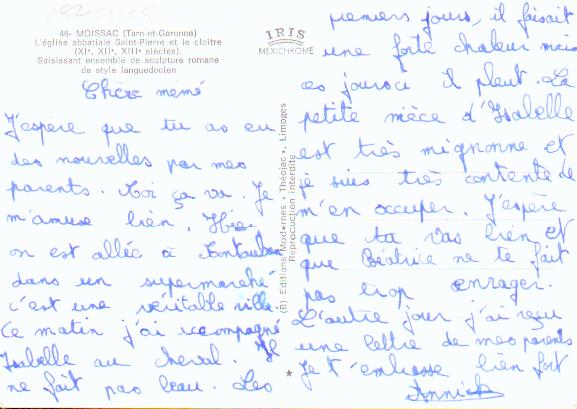 46- MOISSAC (Tarn-et-Garonne)
L'église abbatiale Saint-Pierre et le cloître
(XIᵉ, XIIᵉ, XIIIᵉ siècles).
Saisissant ensemble de sculpture romane
de style languedocien
IRIS
MEXICHROME
(B) Editions Modernes « Théojac », Limoges
Reproduction interdite
Chère mémé
J'espère que tu as eu
des nouvelles par mes
parents. Moi ça va. Je
m'amuse bien. Hier
on est allée à Montauban
dans un supermarché
c'est une véritable ville.
Ce matin j'ai accompagné
Isabelle au cheval. Il
ne fait pas beau. Les
premiers jours, il faisait
une forte chaleur mais
ces jours ci il pleut. La
petite nièce d'Isabelle
est très mignonne et
je suis très contente de
m'en occuper. J'espère
que tu vas bien et
que Béatrice ne te fait
pas trop enrager.
L'autre jour j'ai reçu
une lettre de mes parents
Je t'embrasse bien fort
Annick